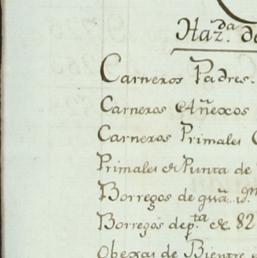 Haz.da de
Carneros Padres.
Carneros Añexos
Carneros Primales
Primales de Punta de
Borregos de gua.
Borregos de p.ta de 82
Obexas de Bientre